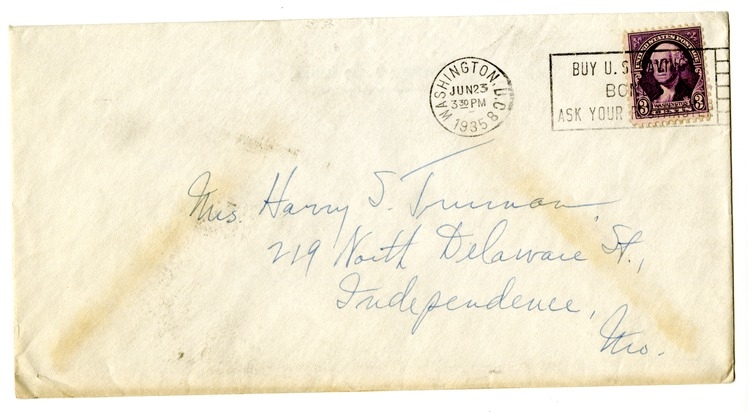 WASHINGTON, D.C. 8
JUN 23
3 30 PM
1935
BUY U.S. SAVINGS
BON
ASK YOUR
UNITED STATES POSTAGE
WASHINGTON
3 CENTS 3
Mrs. Harry S. Truman
219 North Delaware St.,
Independence,
Mo.